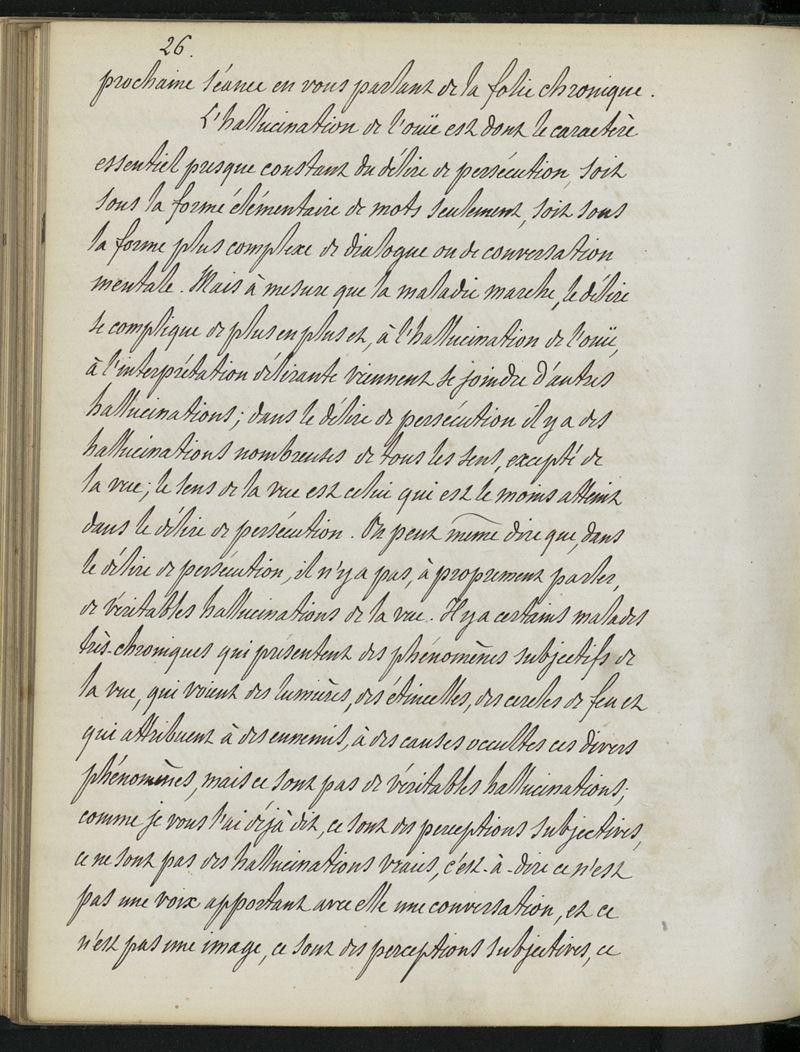 26.
prochaine séance en vous parlant de la folie chronique.
L'hallucination de l'ouïe est dont le caractère
essentiel presque constant du délire de persécution, soit
sous la forme élémentaire de mots seulement, soit sous
la forme plus complexe de dialogue ou de conversation
mentale. Mais à mesure que la maladie marche, le délire
se complique de plus en plus et, à l'hallucination de l'ouïe,
à l'interprétation délirante viennent se joindre d'autres
hallucinations; dans le délire de persécution il y a des
hallucinations nombreuses de tous les sens, excepté de
la vue; le sens de la vue est celui qui est le moins atteint
dans le délire de persécution. On peut même dire que, dans
le délire de persécution, il n'y a pas, à proprement parler,
de véritables hallucinations de la vue. Il y a certains malades
très-chroniques qui présentent des phénomènes subjectifs de
la vue, qui voient des lumières, des étincelles, des cercles de feu et
qui attribuent à des ennemis, à des causes occultes ces divers
phénomènes, mais ce sont pas de véritables hallucinations;
comme je vous l'ai déjà dit, ce sont des perceptions subjectives,
ce ne sont pas des hallucinations vraies, c'est-à-dire ce n'est
pas une voix apportant avec elle une conversation, et ce
n'est pas une image, ce sont des perceptions subjectives, ce